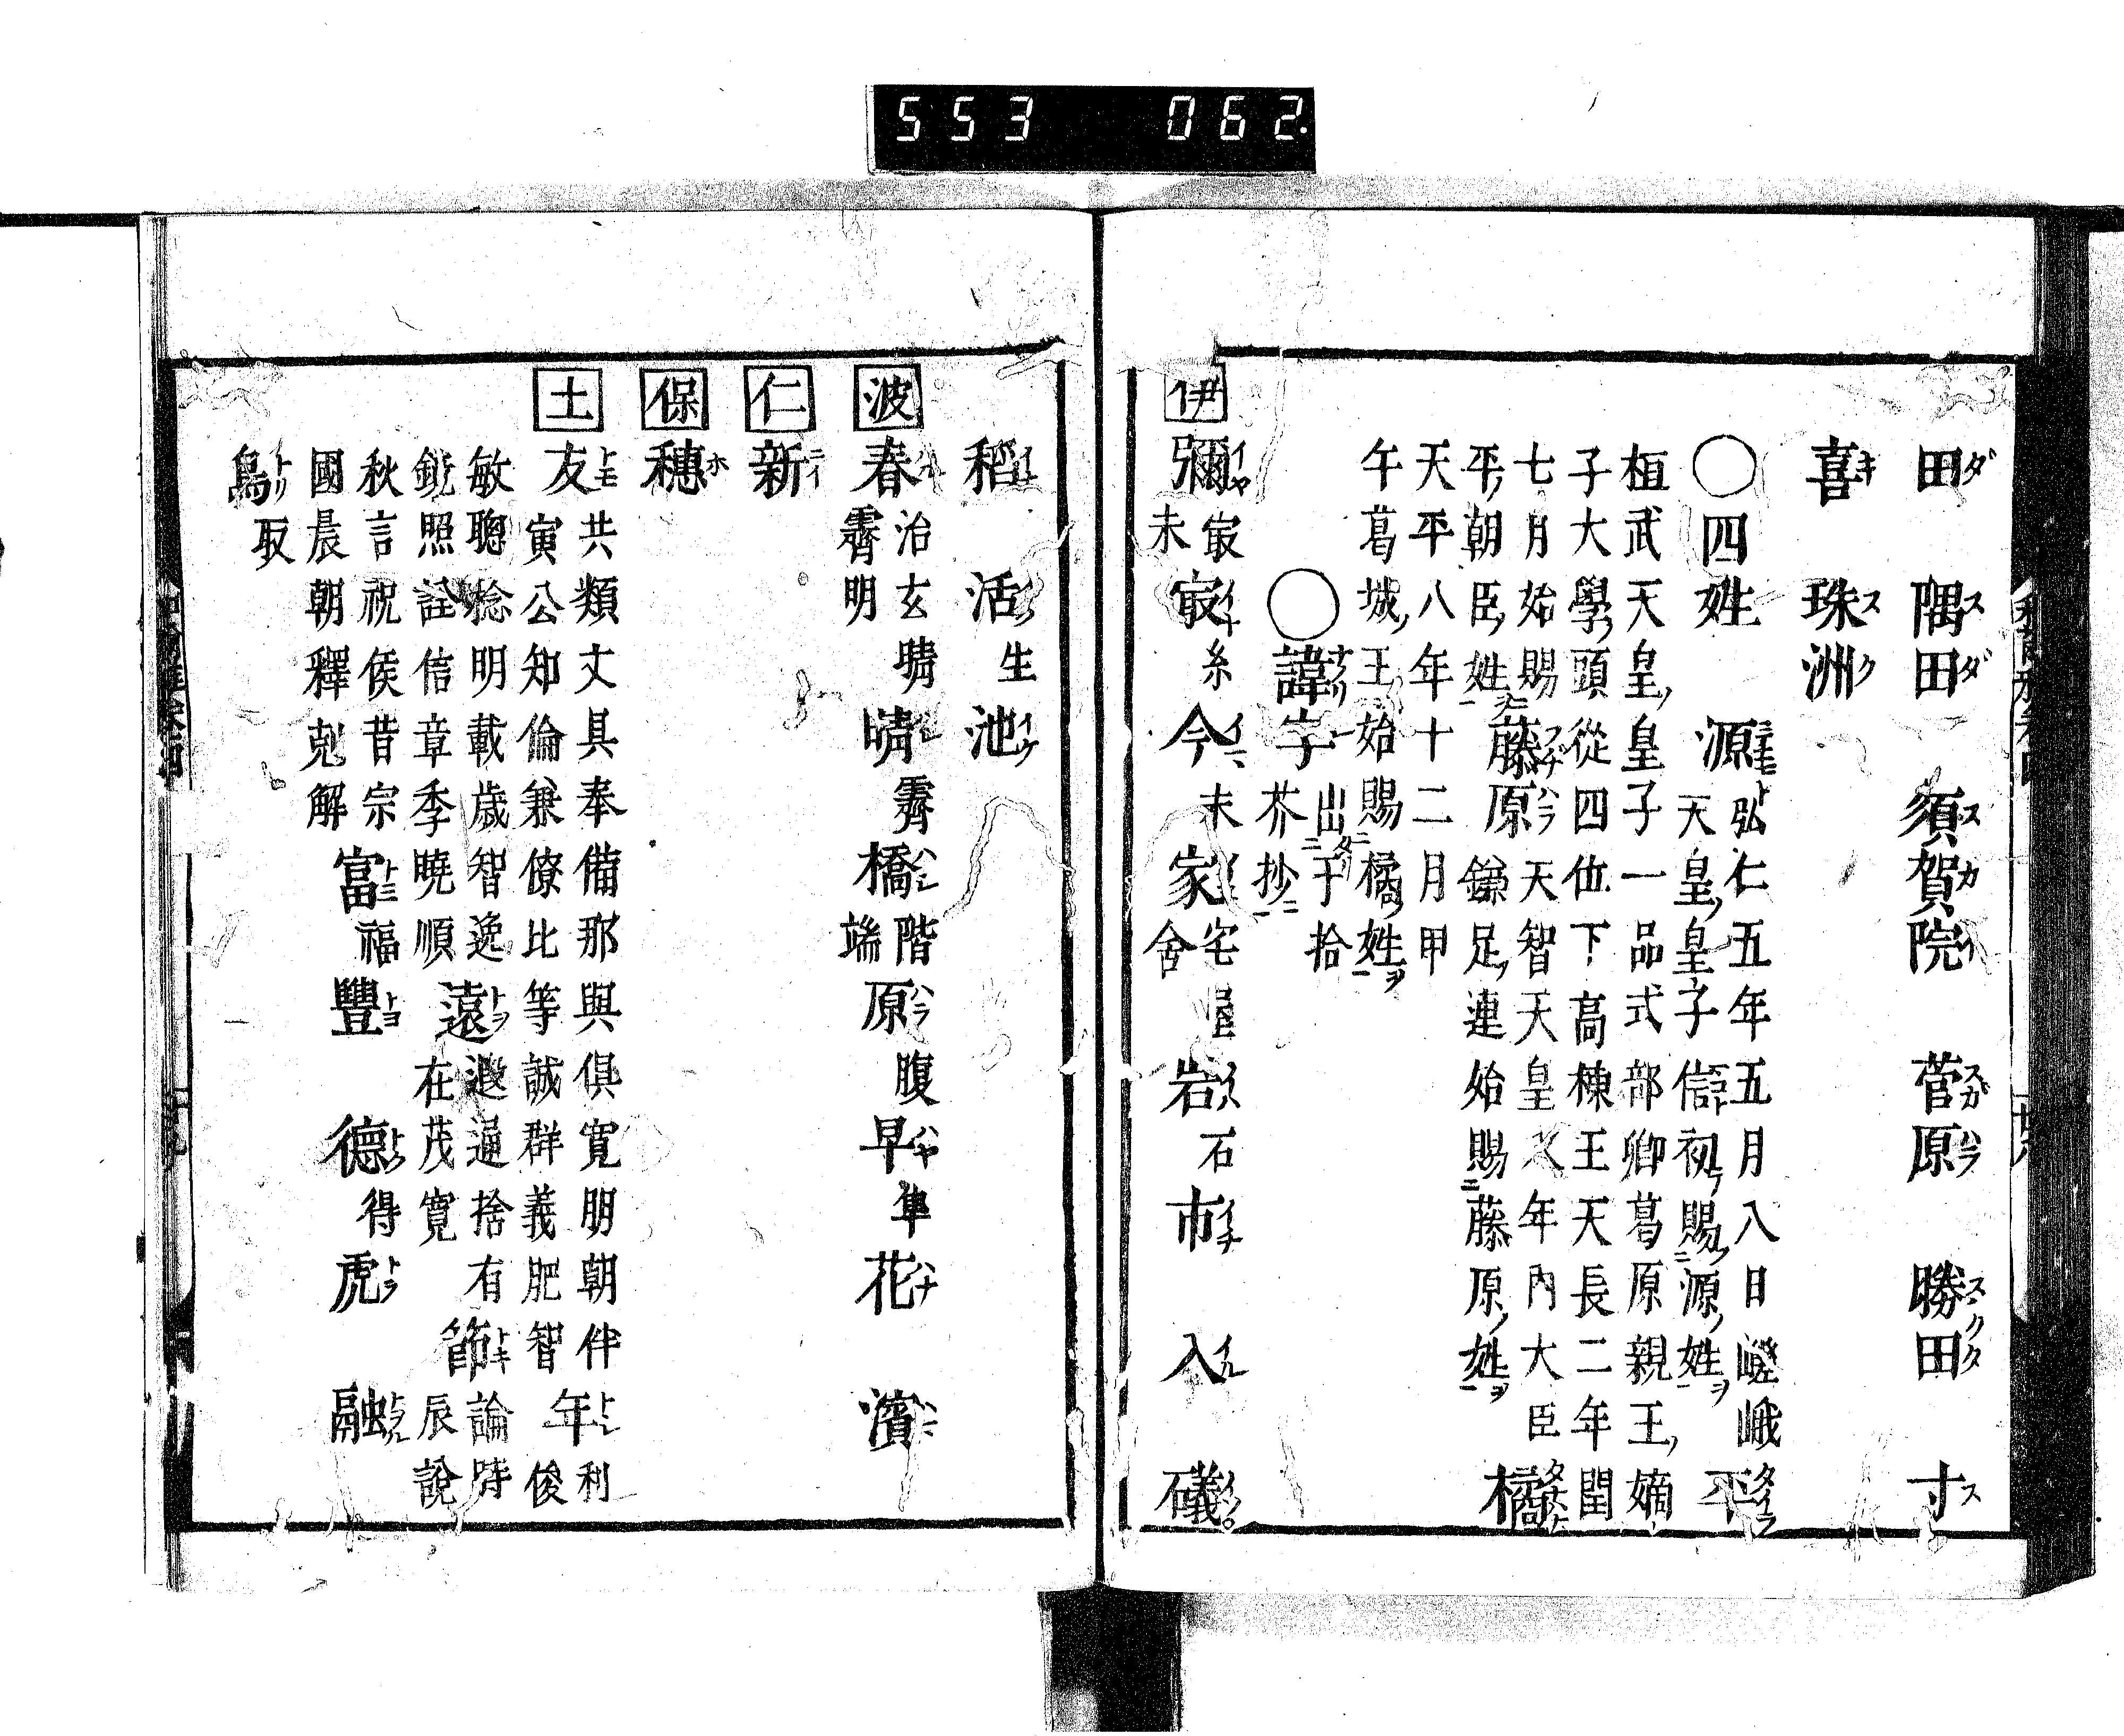 553 062.
田 隅田 須賀院 菅原 勝田 寸
喜 珠洲
○四姓 源 弘仁五年五月八日嵯峨天皇皇子信初賜源姓 平
桓武天皇皇子一品式部卿葛原親王嫡
子大學頭從四位下高棟王天長二年閏
七月始賜平朝臣姓 藤原 天智天皇八年內大臣鎌足連始賜藤原姓 橘
天平八年十二月甲
午葛城王始賜橘姓
○諱字 出于拾芥抄
伊 彌 最未 最 糸 今 末 家 宅屋舍 岩 石 市 入 礒
稻 活 生 池
波 春 治玄晴霽明 晴 霽 橋 階端 原 腹 早 隼 花 濱
仁 新
保 穗
土 友 共類丈具奉備那與俱寬朋朝伴寅公知倫兼僚比等誠群義肥智 年 利俊
敏聰稔明載歲智逸鋭照詮信章季曉順 遠 遐逼捨有在茂寬 節 論時辰說
秋言祝侯昔宗國晨朝釋剋解 富 福 豐 德 得 虎 融
鳥 取